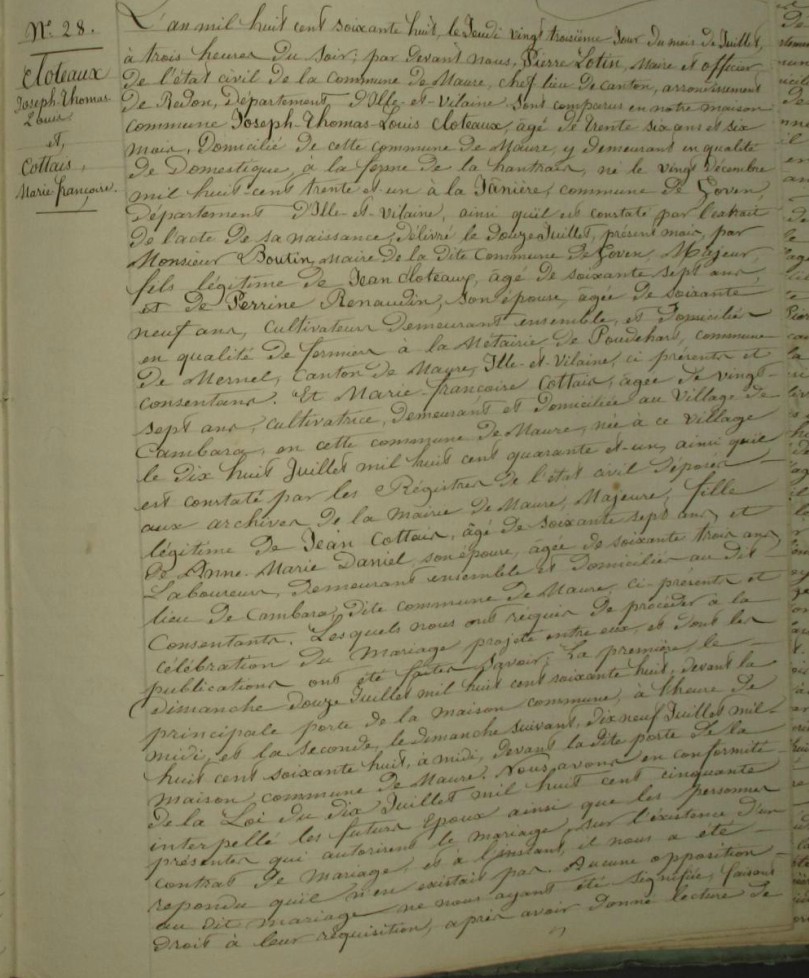 N.° 28.
Cloteaux
Joseph-Thomas
Louis
et,
Cottais,
Marie françoise.
L'an mil huit cent soixante huit, le Jeudi vingt troisième Jour du mois de Juillet,
à trois heures du soir; par devant nous, Pierre Lotin, Maire et officier
de l'état civil de la Commune de Maure, chef lieu de canton, arrondissement
de Redon, Département, d'Ille-et-Vilaine, sont comparus en notre maison
commune Joseph-Thomas-Louis Cloteaux, âgé de trente six ans et six
mois, Domicilié de cette commune de Maure, y demeurant en qualité
de Domestique, à la ferme de la hantrais, né le vingt Décembre
mil huit-cent trente et un à la Janière, commune de Goven,
Département d'Ille-et-Vilaine, ainsi qu'il est constaté par l'extrait
de l'acte de sa naissance, délivré le douze Juillet, présent mois, par
Monsieur Boutin, Maire de la dite Commune de Goven, Majeur,
fils légitime de Jean Cloteaux, âgé de soixante sept ans,
et de Perrine Renaudin, son épouse, âgée de soixante
neuf ans, cultivateurs demeurant ensemble, et domiciliés
en qualité de fermiers à la Métairie de Poudehard, commune
de Mernel, Canton de Maure, Ille-et-Vilaine, ci présents et
consentans. Et Marie-françoise Cottais, âgée de vingt-
sept ans, cultivatrice, demeurant et domiciliée au Village de
Cambara, en cette commune de Maure, née à ce village
le dix huit Juillet mil huit cent quarante et-un, ainsi qu'il
est constaté par les Régistres de l'état civil déposés
aux archives de la mairie de Maure, Majeure, fille
légitime de Jean Cottais, âgé de soixante sept ans, et
de Anne-Marie Daniel, son épouse, âgée de soixante trois ans,
Laboureurs, demeurant ensemble et domiciliés au dit
lieu de Cambara, dite commune de Maure, ci-présents et
Consentants. Lesquels nous ont réquis de procéder à la
célébration du mariage projeté entre eux, et dont les
publications ont été faites, Savoir; La première, le
dimanche douze Juillet mil huit cent soixante huit, devant la
principale porte de la maison commune, à l'heure de
midi, et la seconde, le dimanche suivant, dix neuf Juillet mil-
huit cent soixante huit, à midi, devant la dite porte de la
maison commune de Maure. Nous avons en conformité
de la Loi du dix Juillet mil huit cent cinquante
interpellé les futurs époux ainsi que les personnes
présentes qui autorisent le mariage, sur l'éxistence d'un
contrat de mariage, et à l'instant, il nous a été
repondu qu'il n'en existait pas. Aucune opposition
au dit mariage ne nous ayant été signifiée, faisant
droit à leur réquisition, après avoir donné lecture de